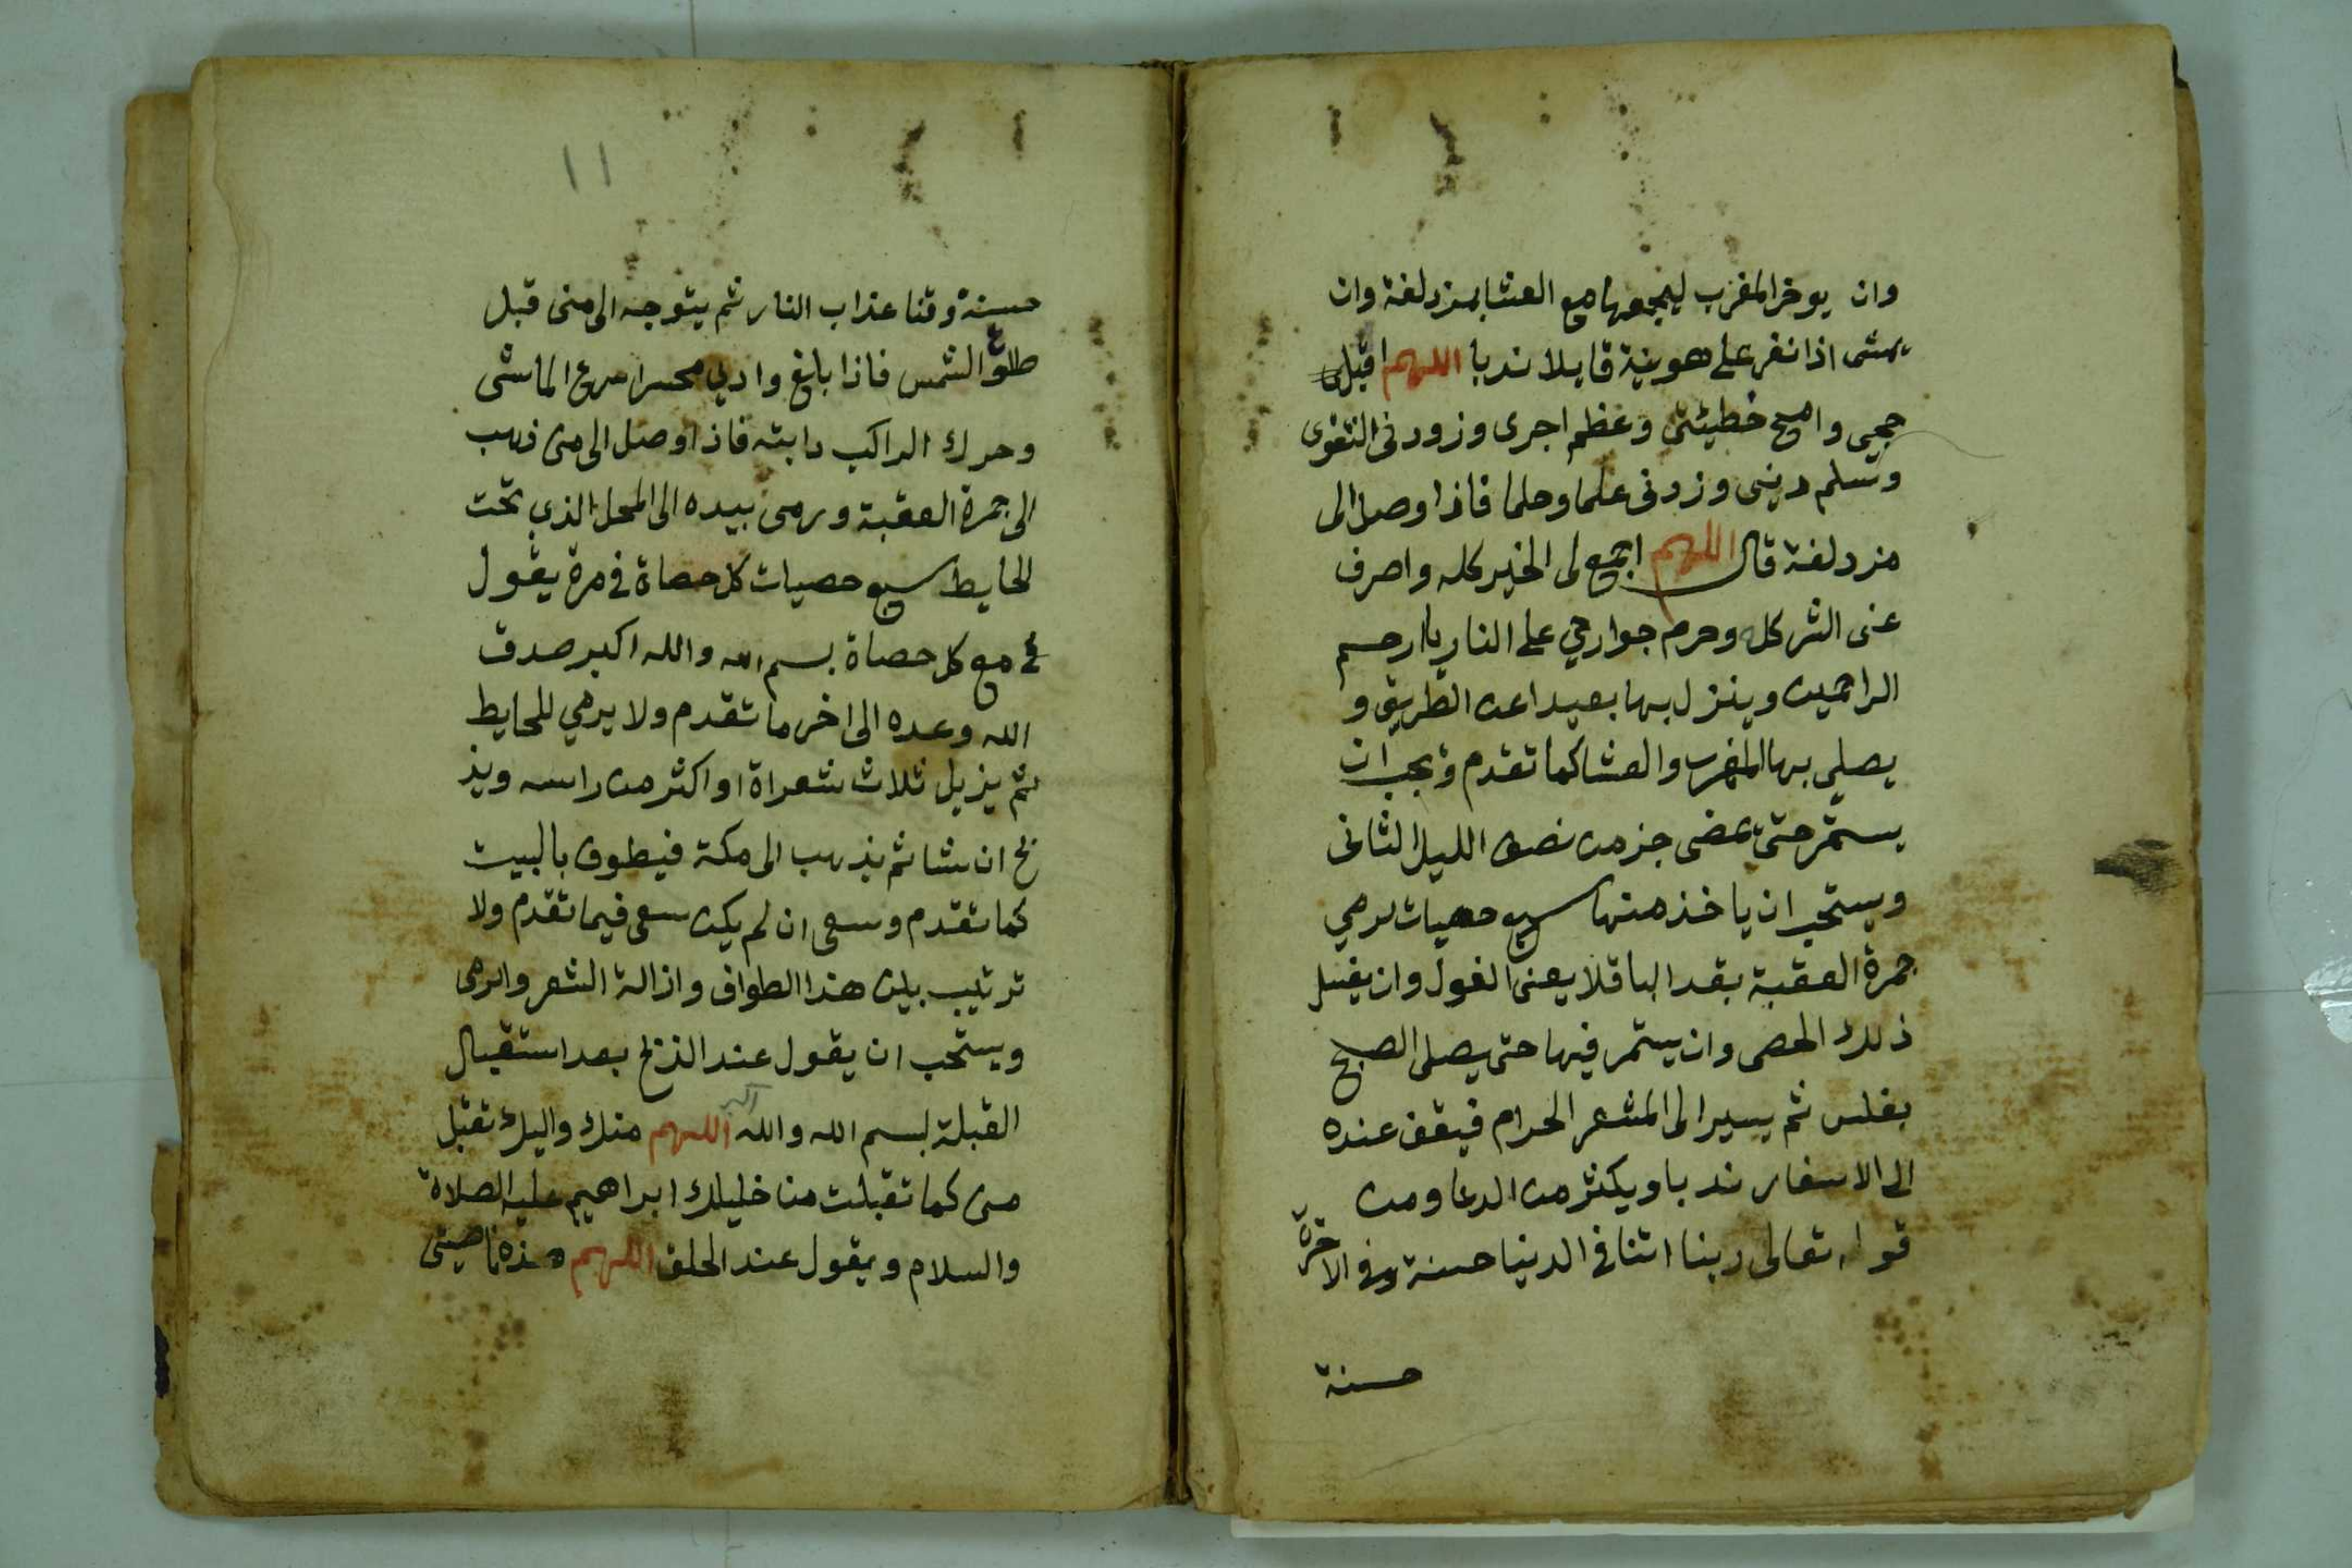 وان يوخر المغرب ليجمعها مع العشا بمزدلفة وان
يمشى اذا نفر على هوينة قايلا ندبا اللهم اقبل
حجي وامح خطيئتى وعظم اجرى وزودنى التقوى
وسلم دينى وزدنى علما وحلما فاذا وصل الى
مزدلفة قال اللهم اجمع لى الخير كله واصرف
عنى الشر كله وحرم جوارحي على النار يا ارحم
الراحمين وينزل بها بعيدا عن الطريق و
يصلي بها المغرب والعشا كما تقدم ويجب ان
يستمر حتى يمضى جز من نصف الليل الثانى
ويستحب ان ياخذ منها سبع حصيات لرمي
جمرة العقبة بقدر الباقلا يعنى الفول وان يغسل
ذلك الحصى وان يستمر فيها حتى يصلى الصبح
بغلس ثم يسير الى المشعر الحرام فيقف عنده
الى الاسفار ندبا ويكثر من الدعا ومن
قوله تعالى ربنا اتنا في الدنيا حسنة وفي الاخرة
حسنة
١١
حسنة وقنا عذاب النار ثم يتوجه الى منى قبل
طلوع الشمس فاذا بلغ وادي محسر اسرع الماشى
وحرك الراكب دابته فاذا وصل الى منى ذهب
الى جمرة العقبة ورمى بيده الى المحل الذي تحت
الحايط سبع حصيات كل حصاة في مرة يقول
مع كل حصاة بسم الله والله اكبر صدق
الله وعده الى اخر ما تقدم ولا يرمي للحايط
ثم يزيل ثلاث شعراة او اكثر من راسه ويذ
بح ان شا ثم يذهب الى مكة فيطوف بالبيت
كما تقدم وسعى ان لم يكن سعى فيما تقدم ولا
ترتيب بين هذا الطواف وازالة الشعر والرمى
ويستحب ان يقول عند الذبح بعد استقبال
القبلة بسم الله والله اكبر اللهم منك واليك تقبل
منى كما تقبلت من خليلك ابراهيم عليه الصلاة
والسلام ويقول عند الحلق اللهم هذه ناصيتى